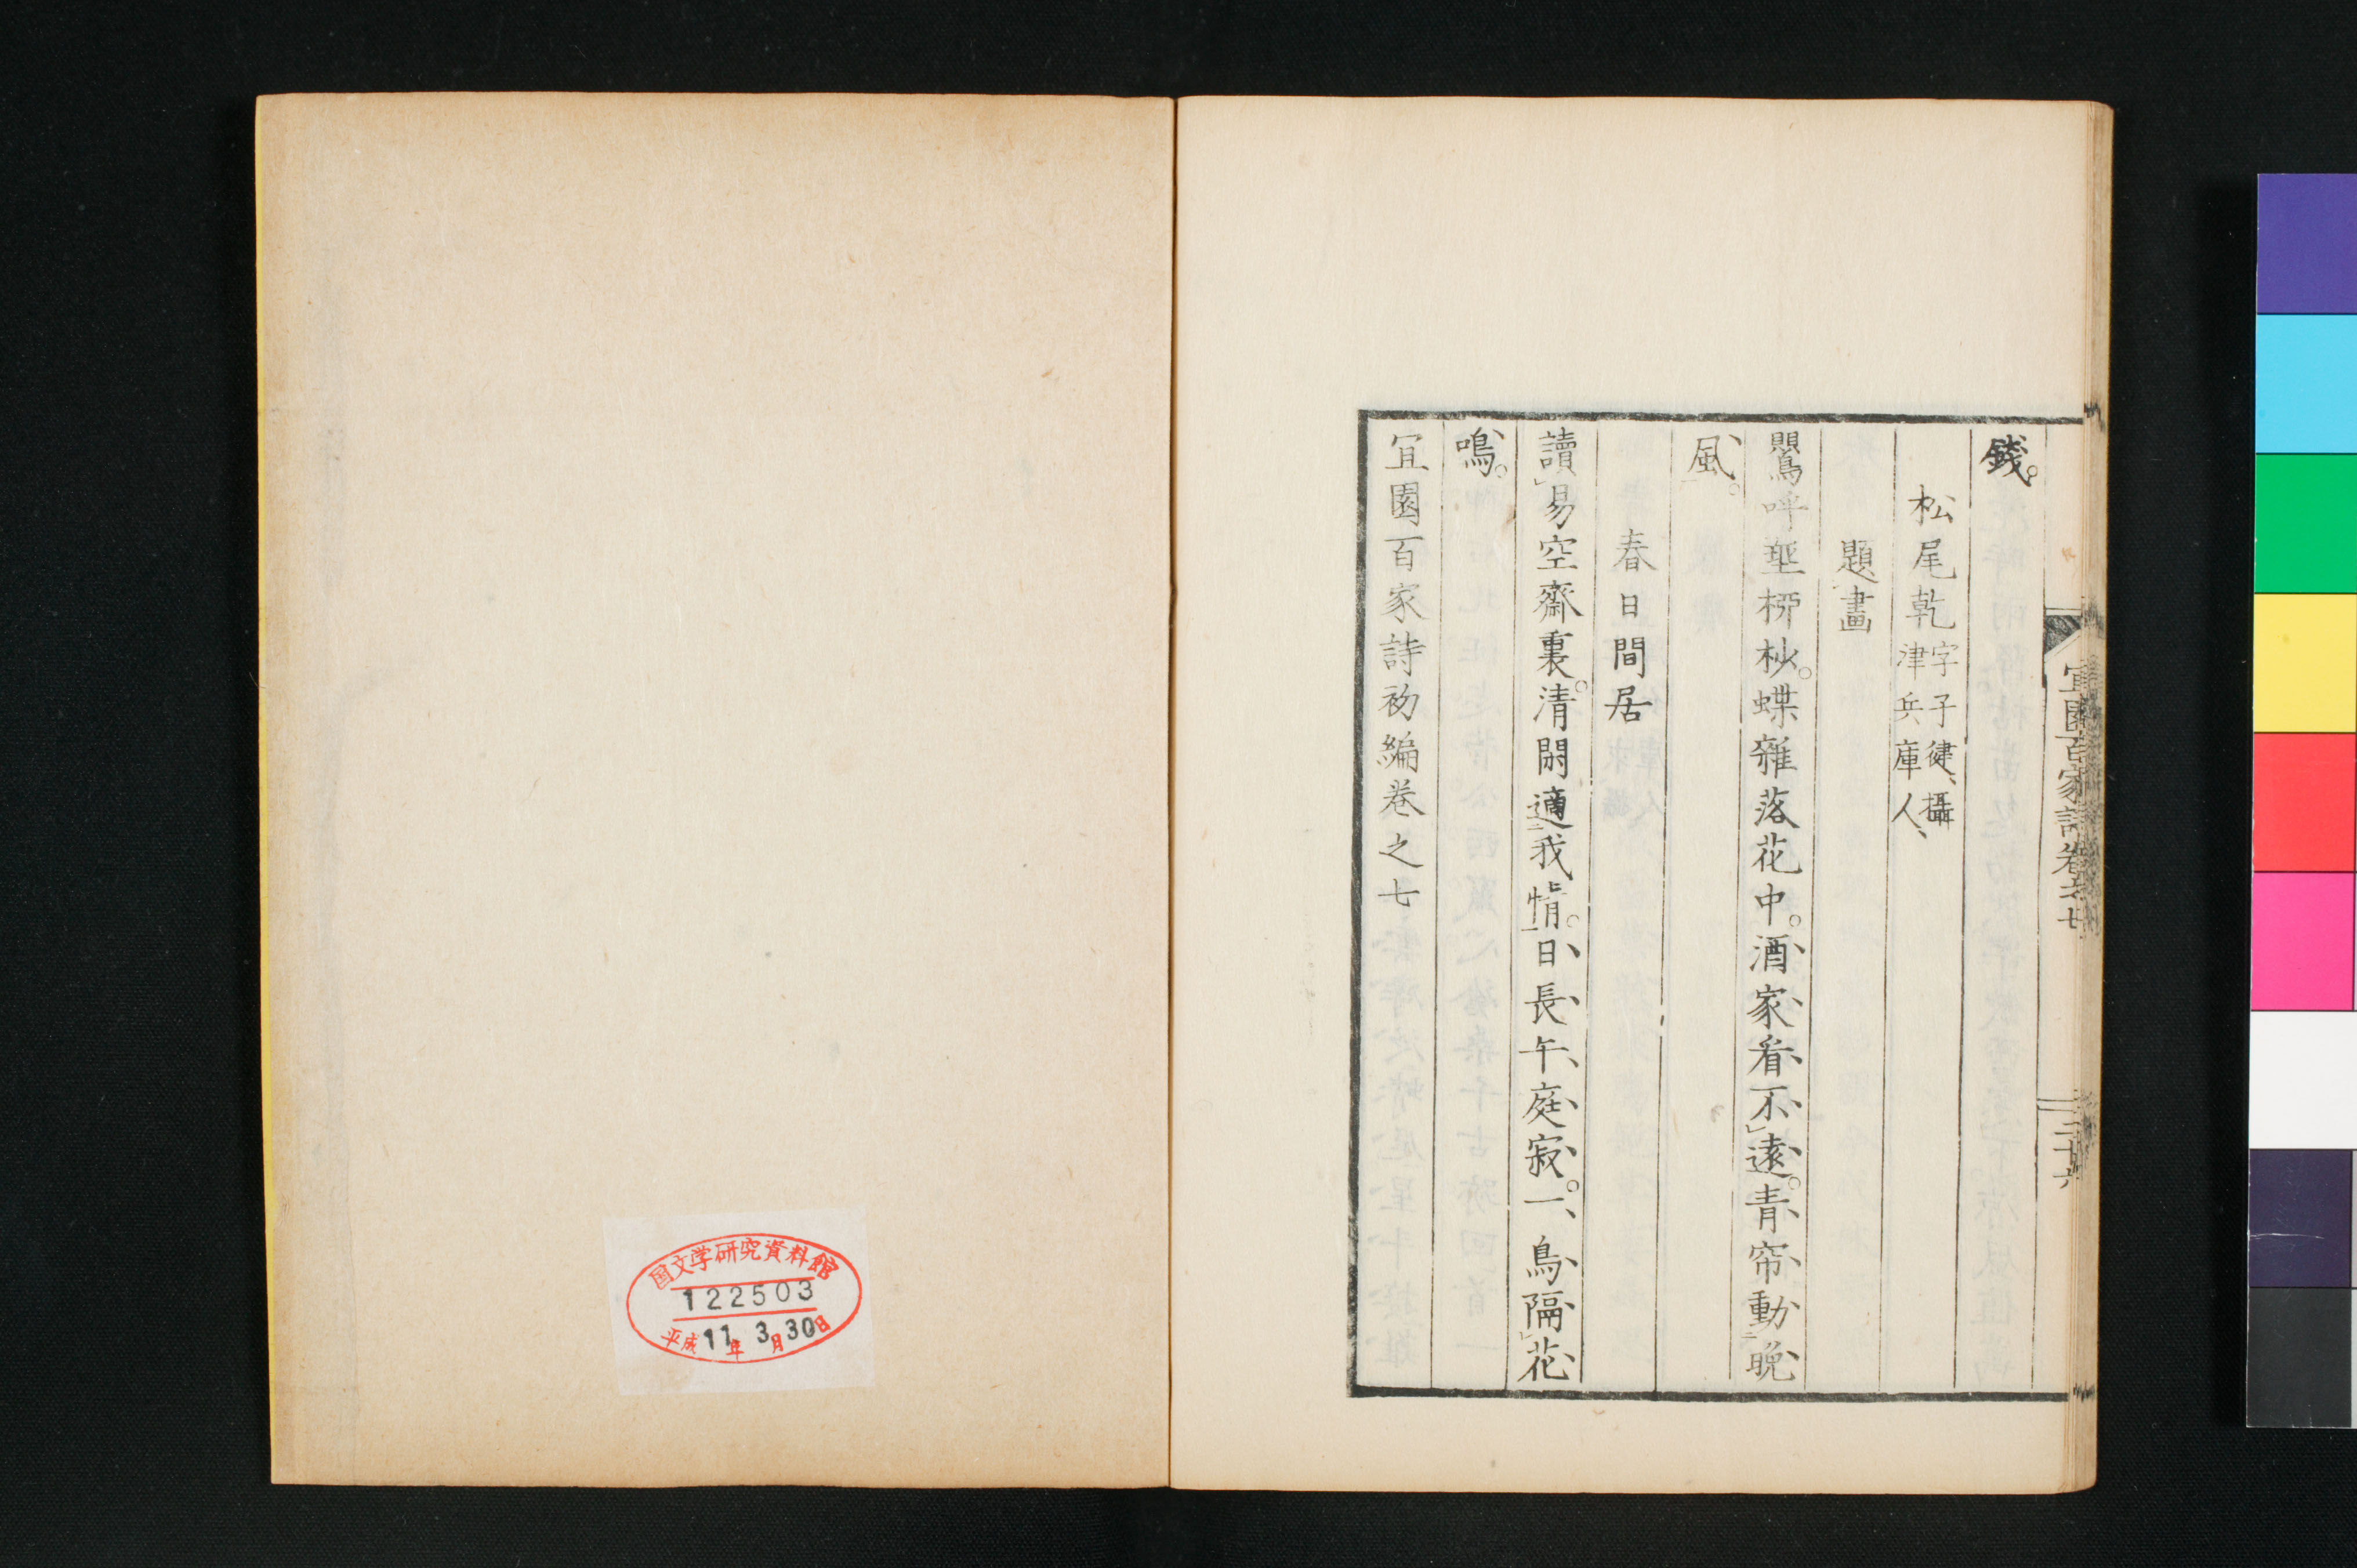 錢。
松尾乾 字子健、攝津兵庫人、
題畫
鸎呼垂栁杪。蝶雜落花中。酒家看不遠。青帘動晩
風。
春日間居
讀易空齋裏。清閑適我情。日長午庭寂。一鳥隔花
鳴。
冝園百家詩初編卷之七
宜園百家詩卷之七
二十六
国文学研究資料館
122503
平成11年3月30日